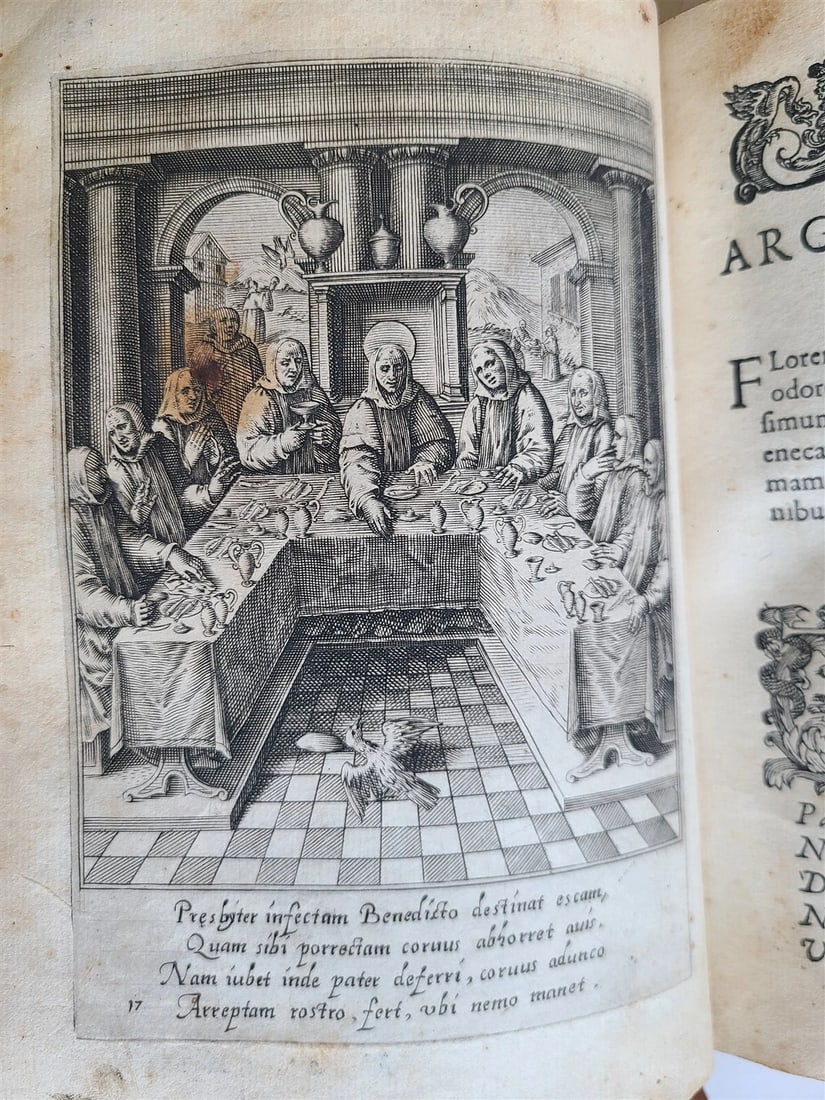 Pręsbyter infectam Benedicto destinat escam,
Quam sibi porrectam coruus abhorret auis.
Nam iubet inde pater deferri, coruus adunco
17 Arreptam rostro, fert, vbi nemo manet.
ARG
FLoren
odor
simun
eneca
mam
nibu
N
D
N
V